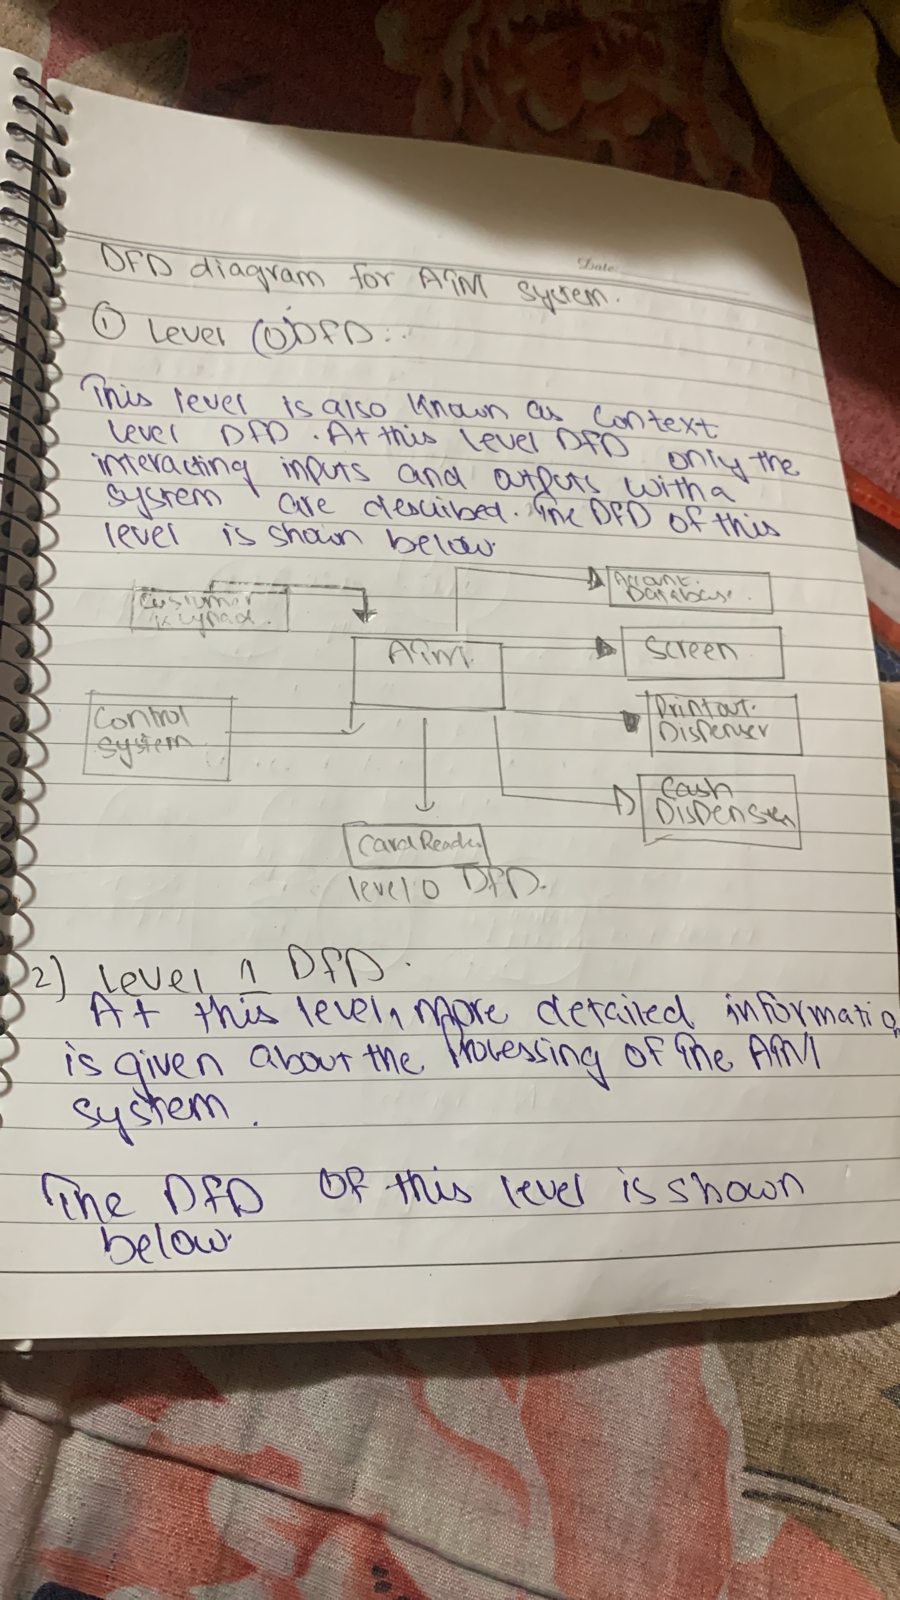 Date
DFD diagram for ATM system.
① Level (0) DFD:
This level is also known as Context
level DFD. At this level DFD only the
interacting inputs and outputs with a
system are described. The DFD of this
level is shown below.
Account
Database.
Customer
Keypad.
ATM
Screen
Control
System
Printout
Dispenser
Cash
Dispenser
Card Reader
level 0 DFD.
2) Level 1 DFD.
At this level, more detailed informatio
is given about the Processing of the ATM
system.
The DFD OF this level is shown
below.